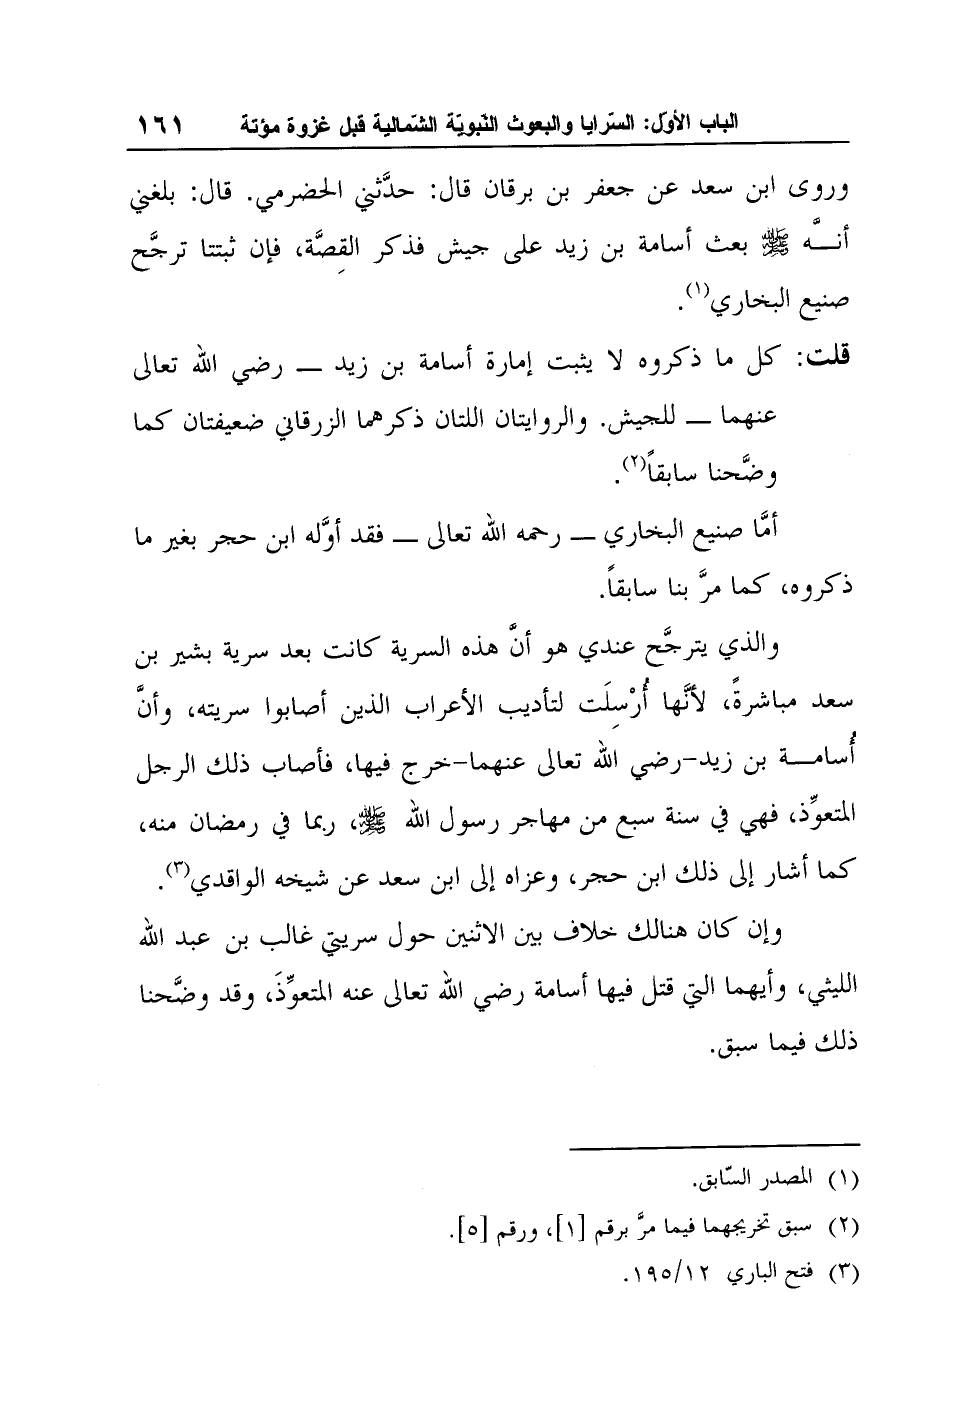 الباب الأوّل: السّرايا والبعوث النّبويّة الشّمالية قبل غزوة مؤتة ١٦١
وروى ابن سعد عن جعفر بن برقان قال: حدَّثني الحضرمي. قال: بلغني
أنَّـــه ﷺ بعث أسامة بن زيد على جيش فذكر القِصَّة، فإن ثبتتا ترجَّح
صنيع البخاري(١).
قلت: كل ما ذكروه لا يثبت إمارة أسامة بن زيد ــ رضي الله تعالى
عنهما ــ للجيش. والروايتان اللتان ذكرهما الزرقاني ضعيفتان كما
وضَّحنا سابقاً(٢).
أمَّا صنيع البخاري ــ رحمه الله تعالى ــ فقد أوَّله ابن حجر بغير ما
ذكروه، كما مرَّ بنا سابقاً.
والذي يترجَّح عندي هو أنَّ هذه السرية كانت بعد سرية بشير بن
سعد مباشرةً، لأنَّها أُرْسِلَت لتأديب الأعراب الذين أصابوا سريته، وأنَّ
أُسامـــة بن زيد-رضي الله تعالى عنهما-خرج فيها، فأصاب ذلك الرجل
المتعوِّذ، فهي في سنة سبع من مهاجر رسول الله ﷺ، ربما في رمضان منه،
كما أشار إلى ذلك ابن حجر، وعزاه إلى ابن سعد عن شيخه الواقدي(٣).
وإن كان هنالك خلاف بين الاثنين حول سريتي غالب بن عبد الله
الليثي، وأيهما التي قتل فيها أسامة رضي الله تعالى عنه المتعوِّذَ، وقد وضَّحنا
ذلك فيما سبق.
(١) المصدر السّابق.
(٢) سبق تخريجهما فيما مرَّ برقم [١]، ورقم [٥].
(٣) فتح الباري ١٩٥/١٢.